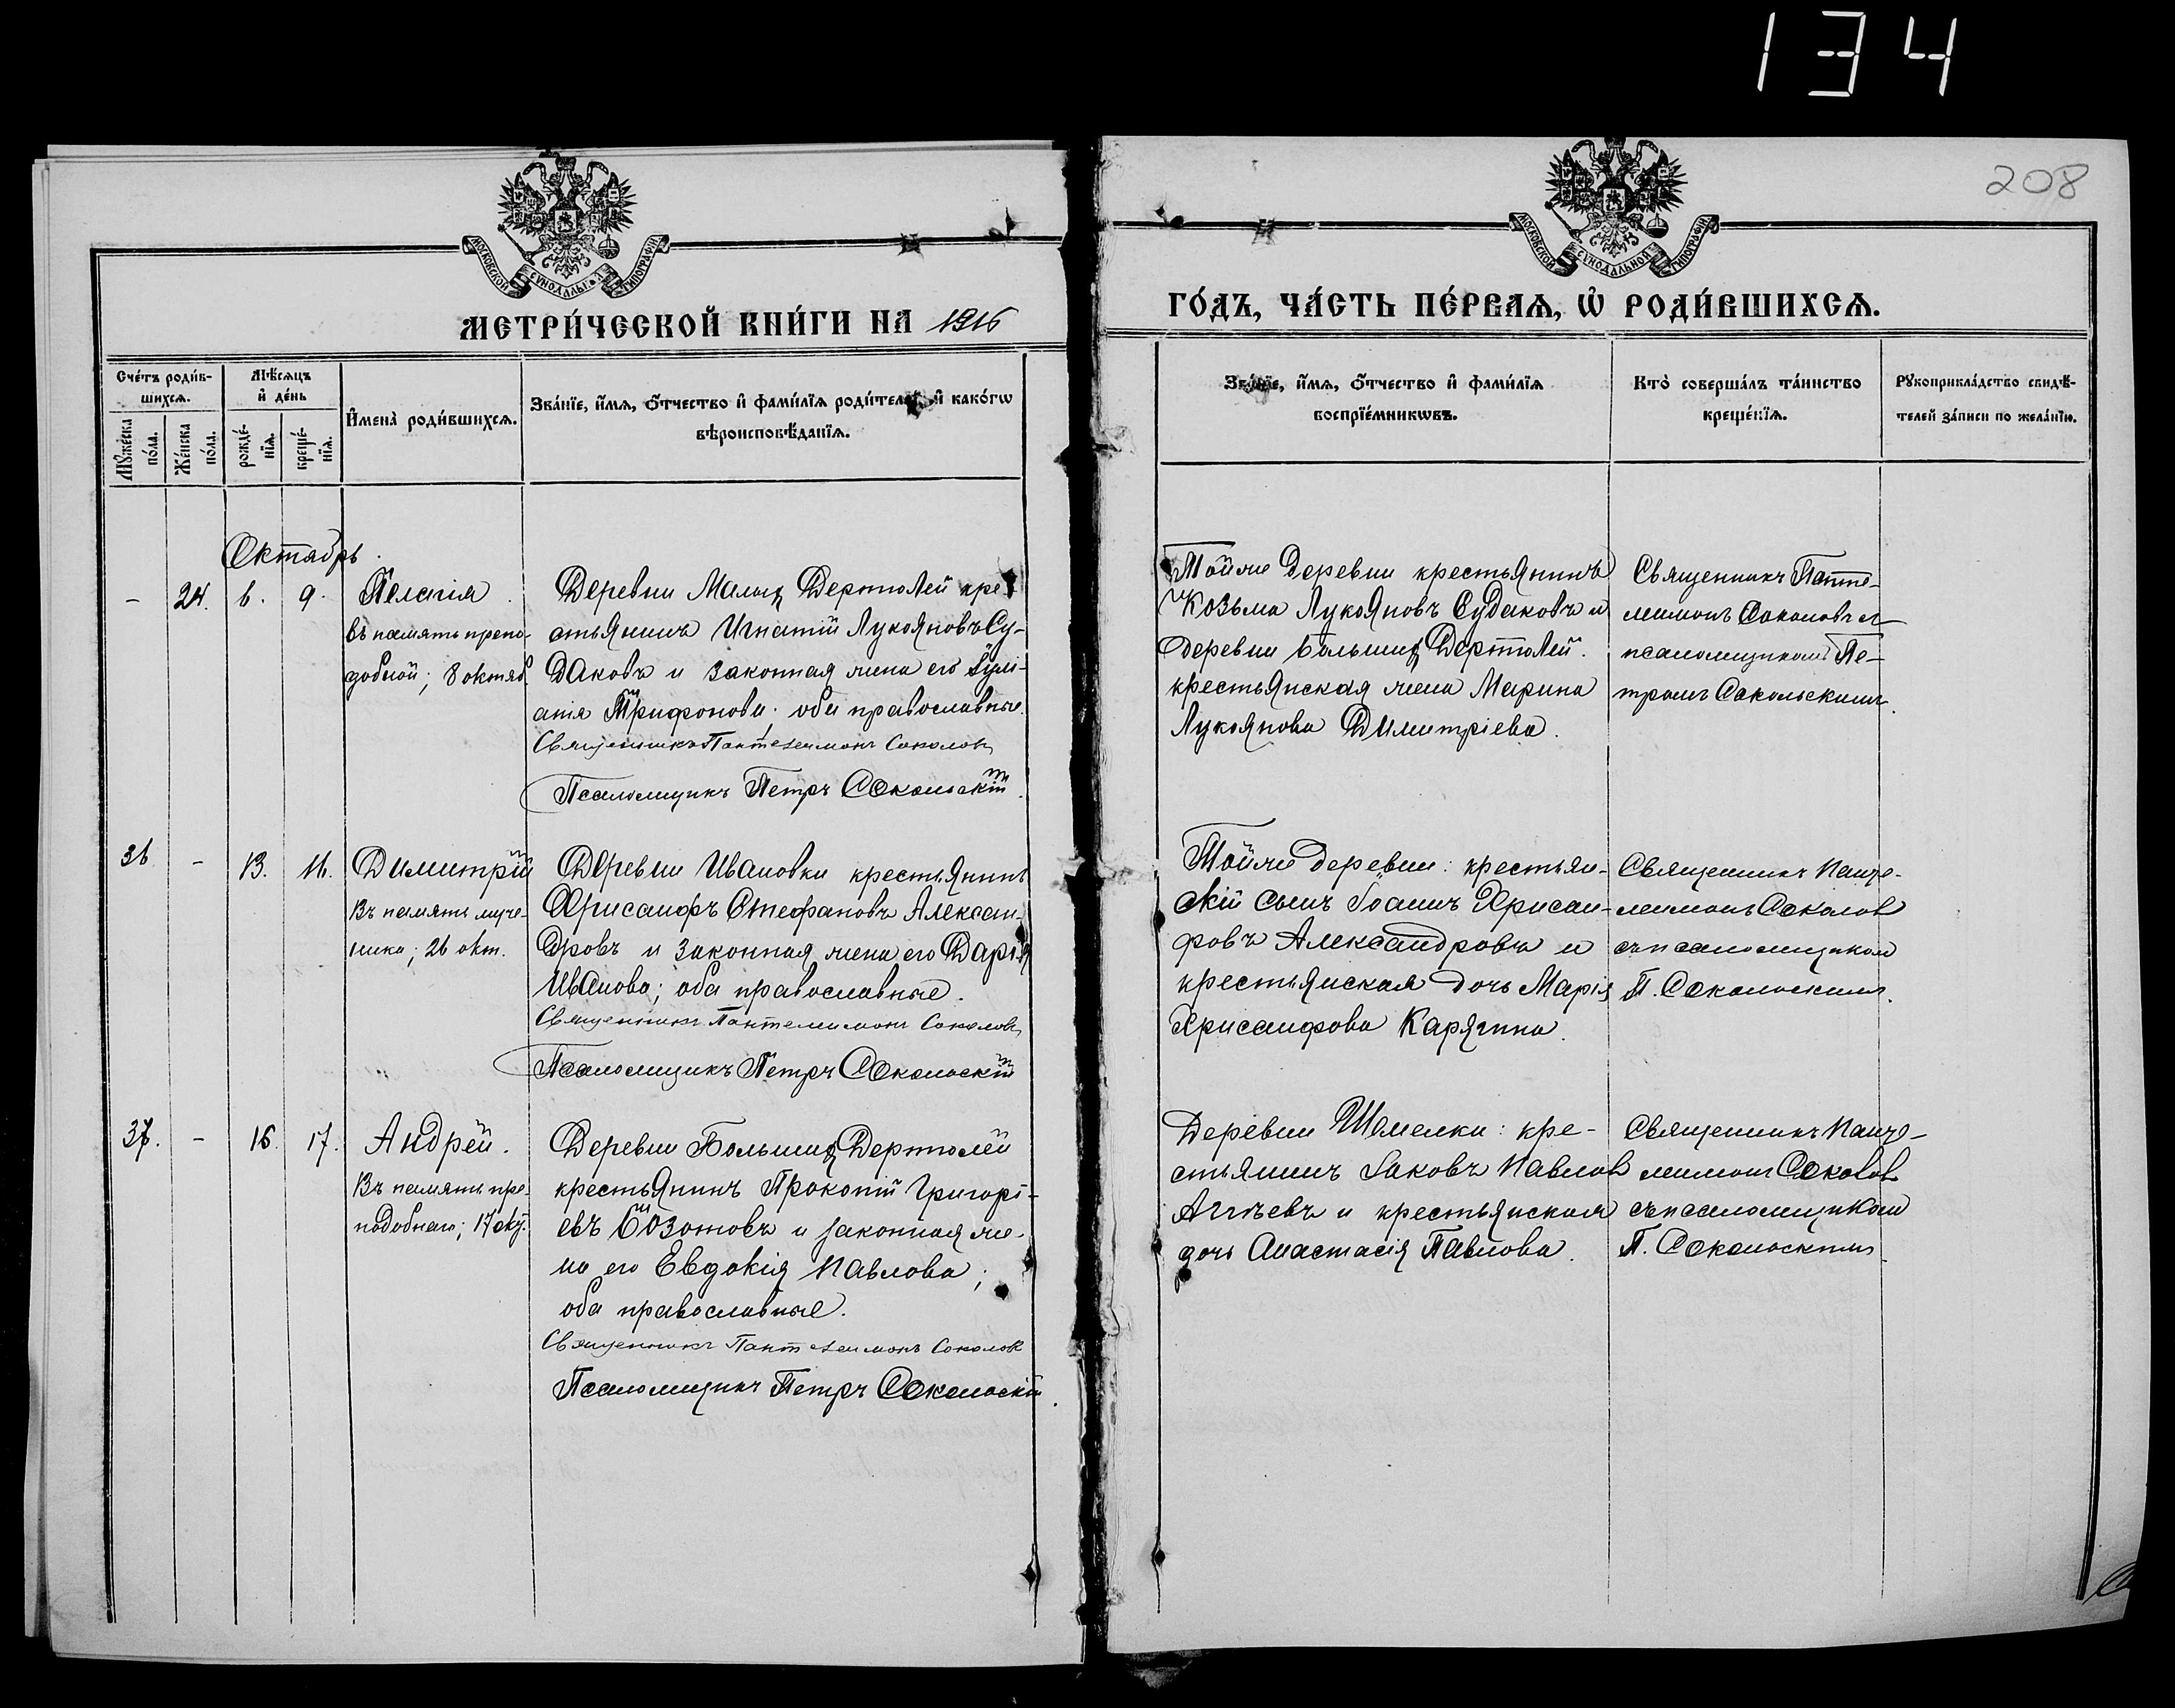 134
208
МОСКОВСКОЙ СѴНОДАЛЬНОЙ ТИПОГРАФІИ
МОСКОВСКОЙ СѴНОДАЛЬНОЙ ТИПОГРАФІИ
МЕТРИ́ЧЕСКОЙ КНИ́ГИ НА 1916
ГО́ДЪ, ЧА́СТЬ ПЕ́РВАѦ, Ѡ҆ РОДИ́ВШИХСѦ.
Сче́тъ роди́в-
шихсѧ.
Мꙋ́жеска
по́ла.
Же́нска
по́ла.
Мѣ́сѧцъ
и҆ де́нь
рожде́-
нїѧ.
креще́-
нїѧ.
И҆мена̀ роди́вшихсѧ.
Зва́нїе, и҆́мѧ, ѻ҆́тчество и҆ фами́лїѧ роди́телей, и҆ како́гѡ
вѣроисповѣ́данїѧ.
Зва́нїе, и҆́мѧ, ѻ҆́тчество и҆ фами́лїѧ
воспрїе́мникѡвъ.
Кто̀ соверша́лъ та́инство
креще́нїѧ.
Рꙋкоприкла́дство свидѣ́-
телей за́писи по жела́нїю.
Октябрь.
- 24. 6. 9.
Пелагія
въ память препо-
добной; 8 октяб.
Деревни Малых Дертолей кре-
стьянинъ Игнатій Лукояновъ Су-
даковъ и законная жена его Іулі-
анія Трифонова; оба православные.
Священникъ Пантелеимонъ Соколовъ
Псаломщикъ Петръ Сокольскій.
Тойже деревни крестьянинъ
Козьма Лукояновъ Судаковъ и
деревни Большихъ Дертолей.
крестьянская жена Марина
Лукоянова Димитріева.
Священникъ Панте-
лимонъ Соколовъ и
псаломщикомъ Пе-
тромъ Сокольскимъ.
36 - 13. 16.
Димитрій
Въ память муче-
ника; 26 окт.
Деревни Ивановки крестьянинъ
Хрисанфъ Стефановъ Алексан-
дровъ и законная жена его Дарія
Иванова; оба православные.
Священникъ Пантелимонъ Соколовъ
Псаломщикъ Петръ Сокольскій
Тойже деревни: крестьян-
скій сынъ Іоаннъ Хрисан-
фовъ Александровъ и
крестьянская дочь Марія
Хрисанфова Карягина.
Священникъ Панте-
лимонъ Соколов
съ псаломщиком
П. Сокольскимъ.
37. - 16. 17.
Андрей.
Въ память пре-
подобнаго; 17 окт.
Деревни Большихъ Дертолей
крестьянинъ Прокопій Григорі-
евъ и законная же-
на его Евдокія Павлова;
оба православные.
Священникъ Пантелеимонъ Соколов
Псаломщикъ Петръ Сокольскій.
Деревни Шемелки: кре-
стьянинъ Іаковъ Павлов
Аггѣевъ и крестьянская
дочь Анастасія Павлова.
Священникъ Панте-
лимонъ Соколов
съ псаломщиком
П. Сокольскимъ.